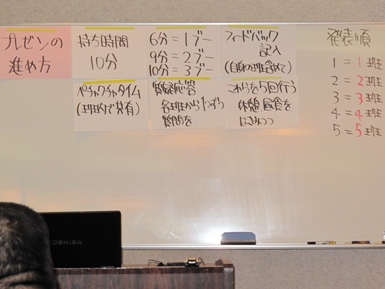 プレゼンの
進め方
持ち時間
10分
6分=1ブー
9分=2ブー
10分=3ブー
フィードバック
記入
(自身の班含めて)
ペチャクチャタイム
(班内で共有)
質疑応答
各班から1つずつ
質問を
これを5回行う
休憩昼食を
はさみつつ
発表順
1=1班
2=2班
3=3班
4=4班
5=5班
TOSHIBA